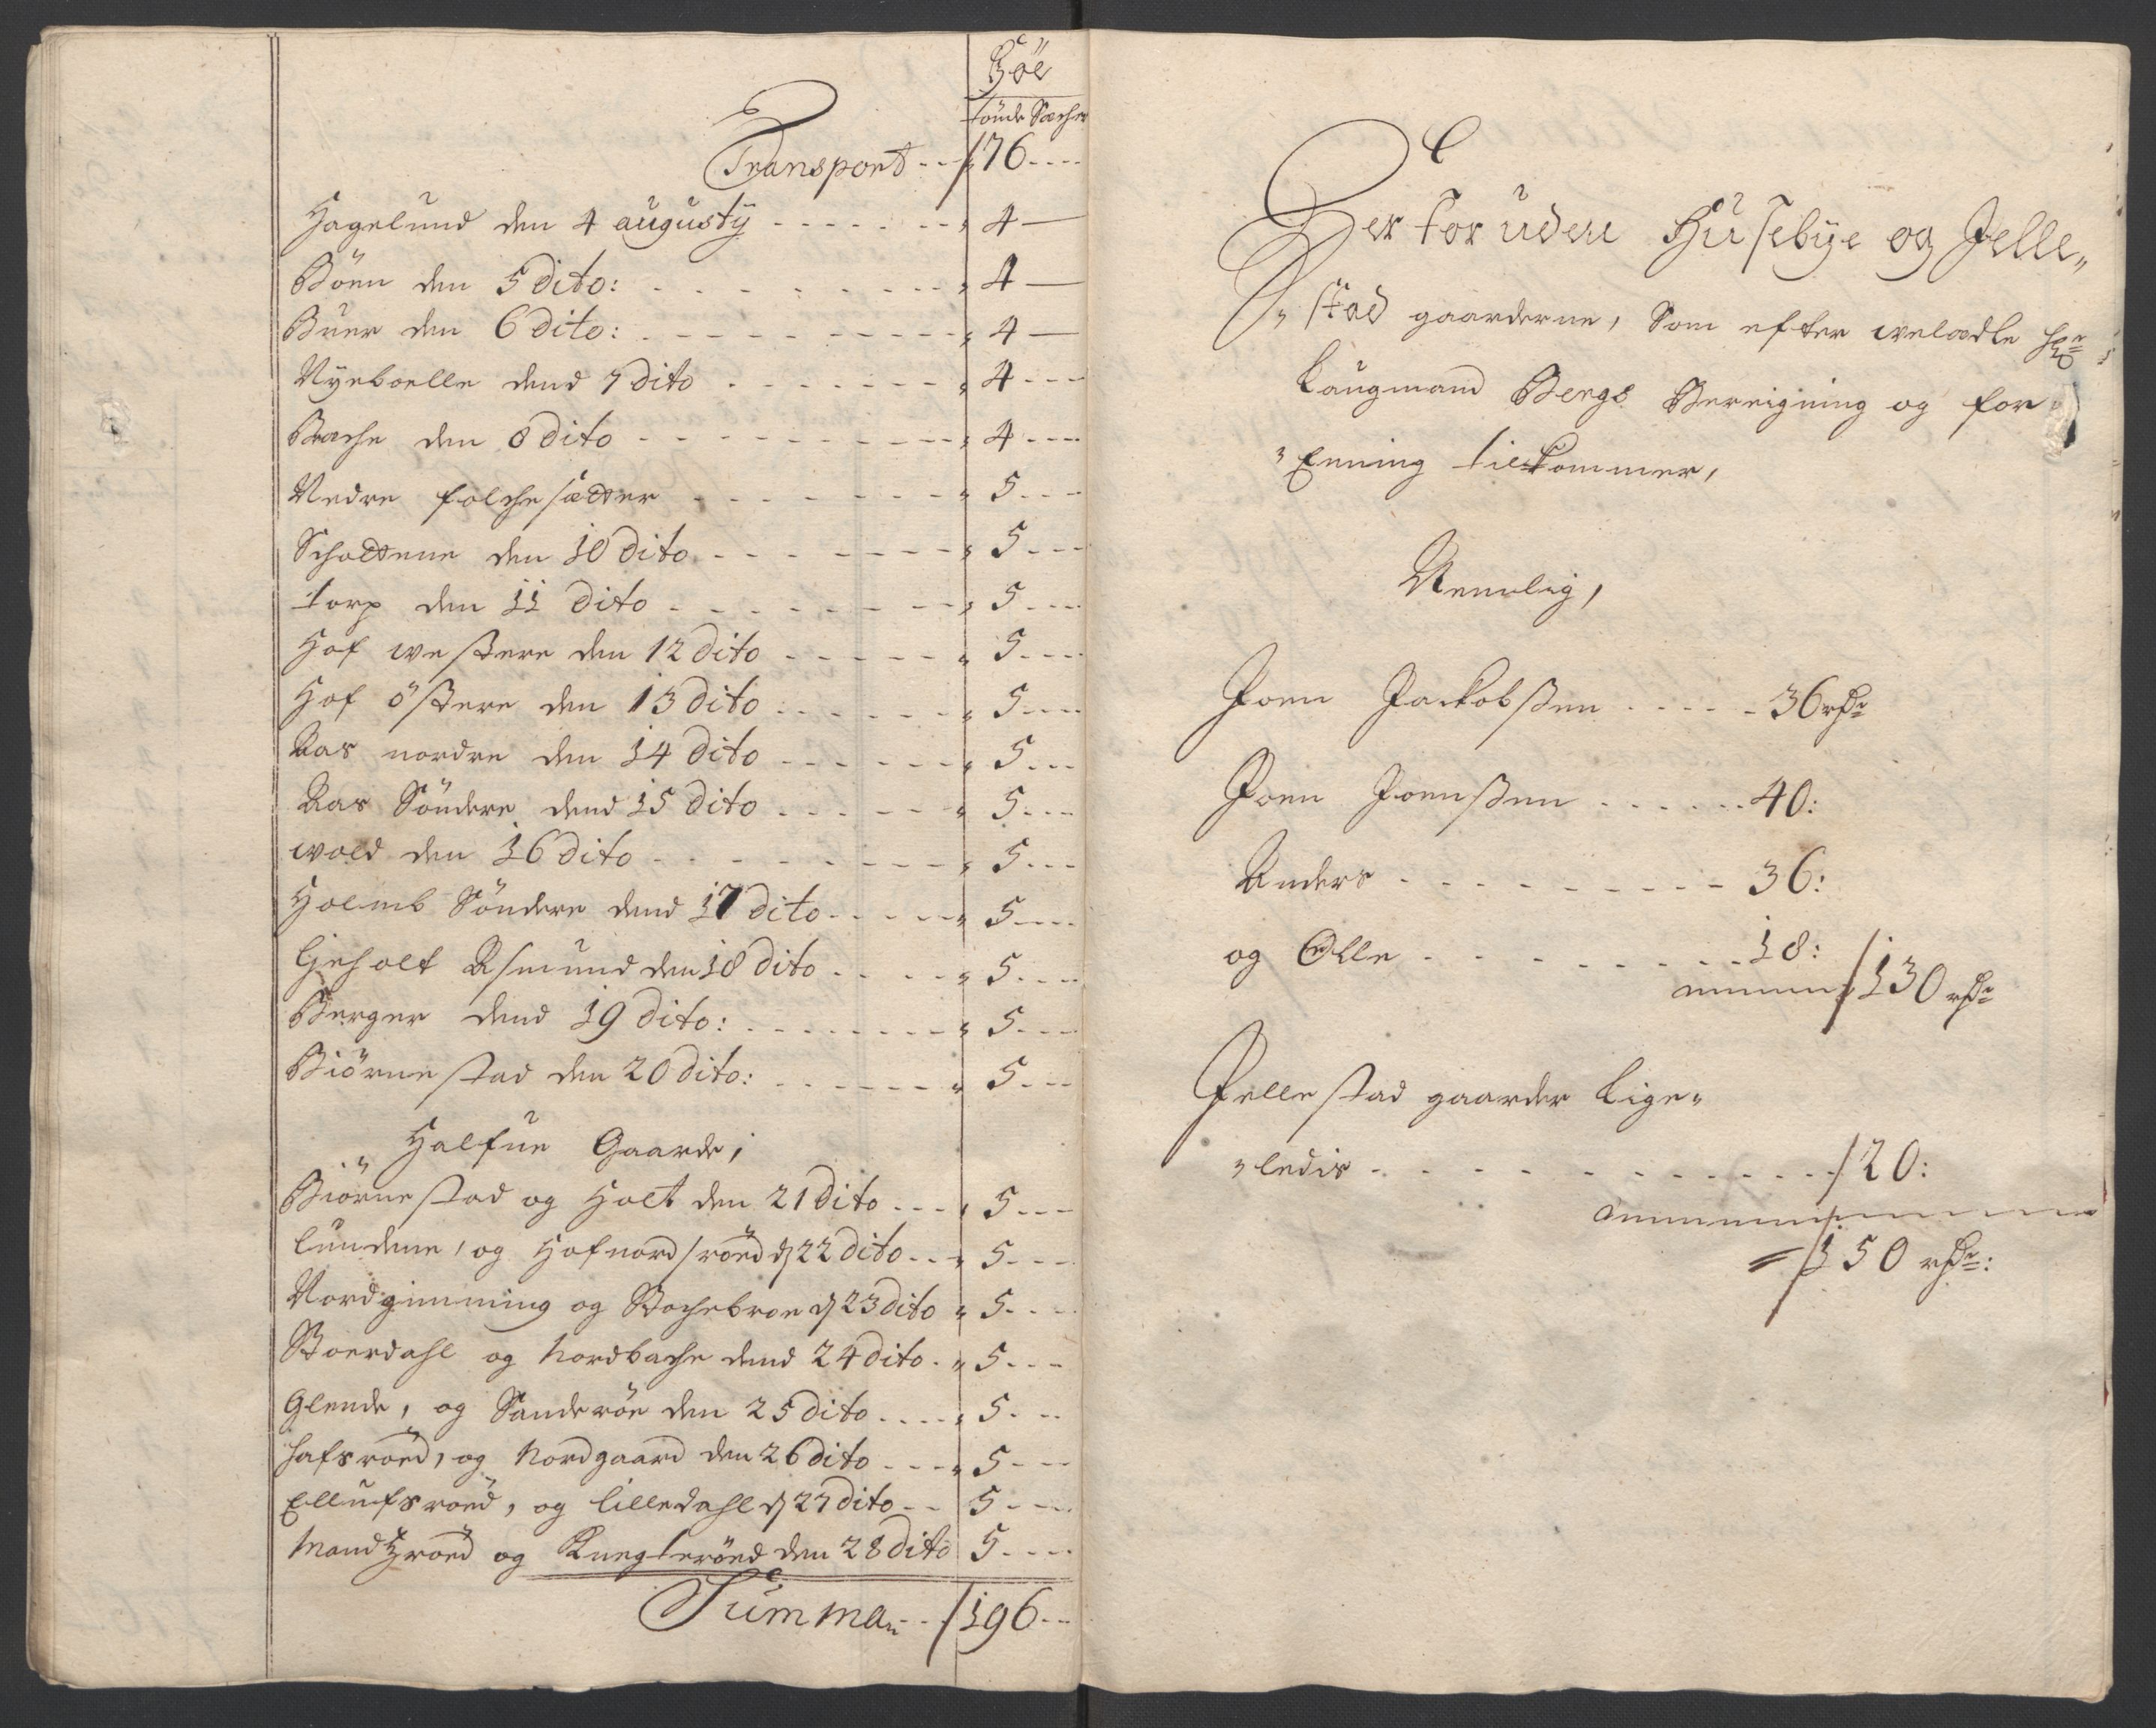 Höe
tönde Sæcher
Transport - - 76 - - -
Hagelund den 4 augusty - - - - - - 4 —
Böen den 5 dito: - - - - - - - - 4 —
Buer den 6 dito: - - - - - - - - 4 —
Nyeboelle dend 7 dito - - - - - - - 4 - - -
Bache den 8 dito - - - - - - - - 4 - - -
Nedre folchesætter - - - - - - - 5 - - -
Schottene den 10 dito - - - - - - - 5 - - -
torp den 11 dito - - - - - - - - 5 - - -
Hof westere den 12 dito - - - - - 5 - - -
Hof östere den 13 dito - - - - - - 5 - - -
Aas nordre den 14 dito - - - - - - 5 - - -
Aas Söndere dend 15 dito - - - - - 5 - - -
wold den 16 dito - - - - - - - - 5 - - -
Holmb Söndere dend 17 dito - - - - 5 - - -
Gieholt Asmund den 18 dito - - - - 5 - - -
Berger dend 19 dito: - - - - - - - 5 - - -
Biörnestad den 20 dito: - - - - - - 5 - - -
Halfue Gaarde,
Biörnestad og Holt den 21 dito - - - 5 - - -
Lundene, og Hofnordsröed d 22 dito - - - 5 - - -
Nordginning og Stochebroe d 23 dito 5 - - -
Stoerdahl og Nordbache dend 24 dito - 5 - - -
Glende, og Sanderöe den 25 dito - - - - 5 - - -
hafsroed, og Nordgaard den 26 dito - - - 5 - - -
Ellufsroed, og Lilledahl d 27 dito - - 5 - - -
Mandtzroed og Knegteröed den 28 dito 5 - - -
Summa - - 196 - -
Der foruden Husebye og Jelle„
„stad gaarderne, Som efter welædle Hr
Laugmand Bergs Bereigning og for
„Enning tilkommer,
Nemlig,
Joen Jackobßen - - - - - 36 rdr
Joen Joenßen - - - - - - 40:
Anders - - - - - - - - - 36:
og Olle - - - - - - - - - 18:
130 rdr
Jellestad gaarder Lige„
„ledis - - - - - - - - - - - - 20:
= 150 rdr: